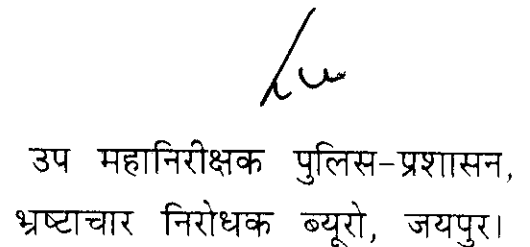 उप महानिरीक्षक पुलिस-प्रशासन,
भ्रष्टाचार निरोधक ब्यूरो, जयपुर।